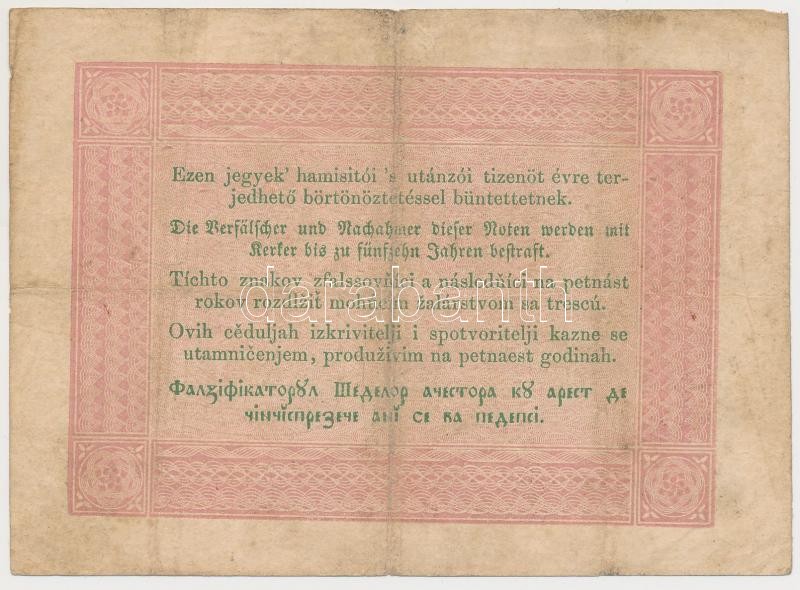 Ezen jegyek' hamisitói 's utánzói tizenöt évre ter-
jedhető börtönöztetéssel büntettetnek.
Die Verfälscher und Nachahmer dieser Noten werden mit
Kerker bis zu fünfzehn Jahren bestraft.
Tíchto znakov zfalssovňíci a následňíci na petnást
rokov rozálžiť mohúcím žalárstvom sa trescú.
Ovih cěduljah izkrivitelji i spotvoritelji kazne se
utamničenjem, produživim na petnaest godinah.
Фалꙁіфікаторꙋл Шеделор ачестора кꙋ арест де
чінчіспреꙁече ані се ва педепсі.
darabanth